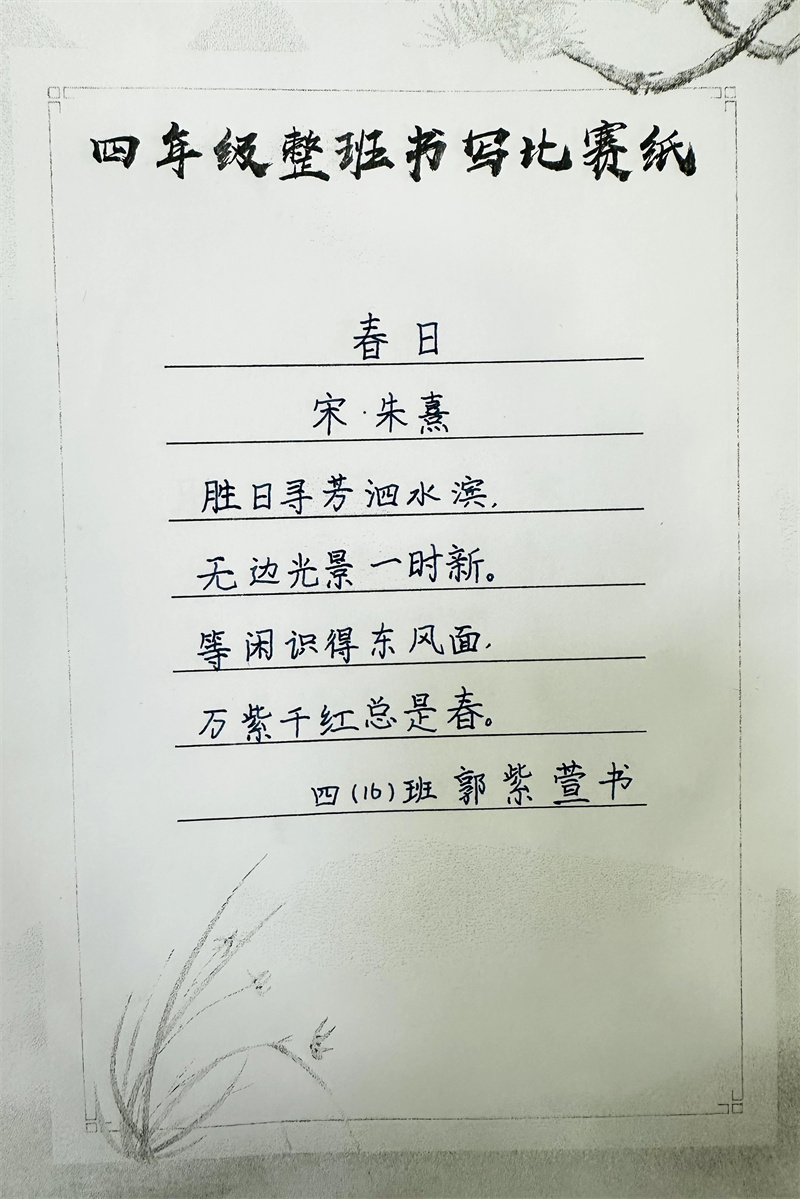 四年级整班书写比赛纸
春日
宋·朱熹
胜日寻芳泗水滨,
无边光景一时新。
等闲识得东风面,
万紫千红总是春。
四(16)班 郭紫萱书